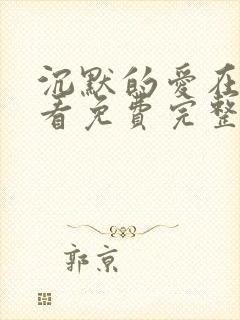 沉默的爱在
看免费完整
郭京